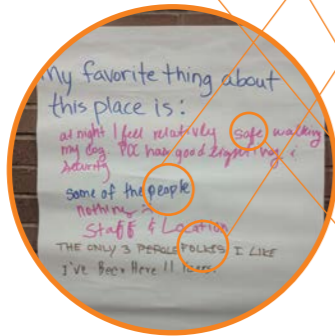 My favorite thing about
this place is:
at night I feel relatively safe walking
my dog. POC has good lighting &
security
some of the people
nothing
Staff & Location
THE ONLY 3 PEOPLE FOLKES I LIKE
I've Been Here 11 Years